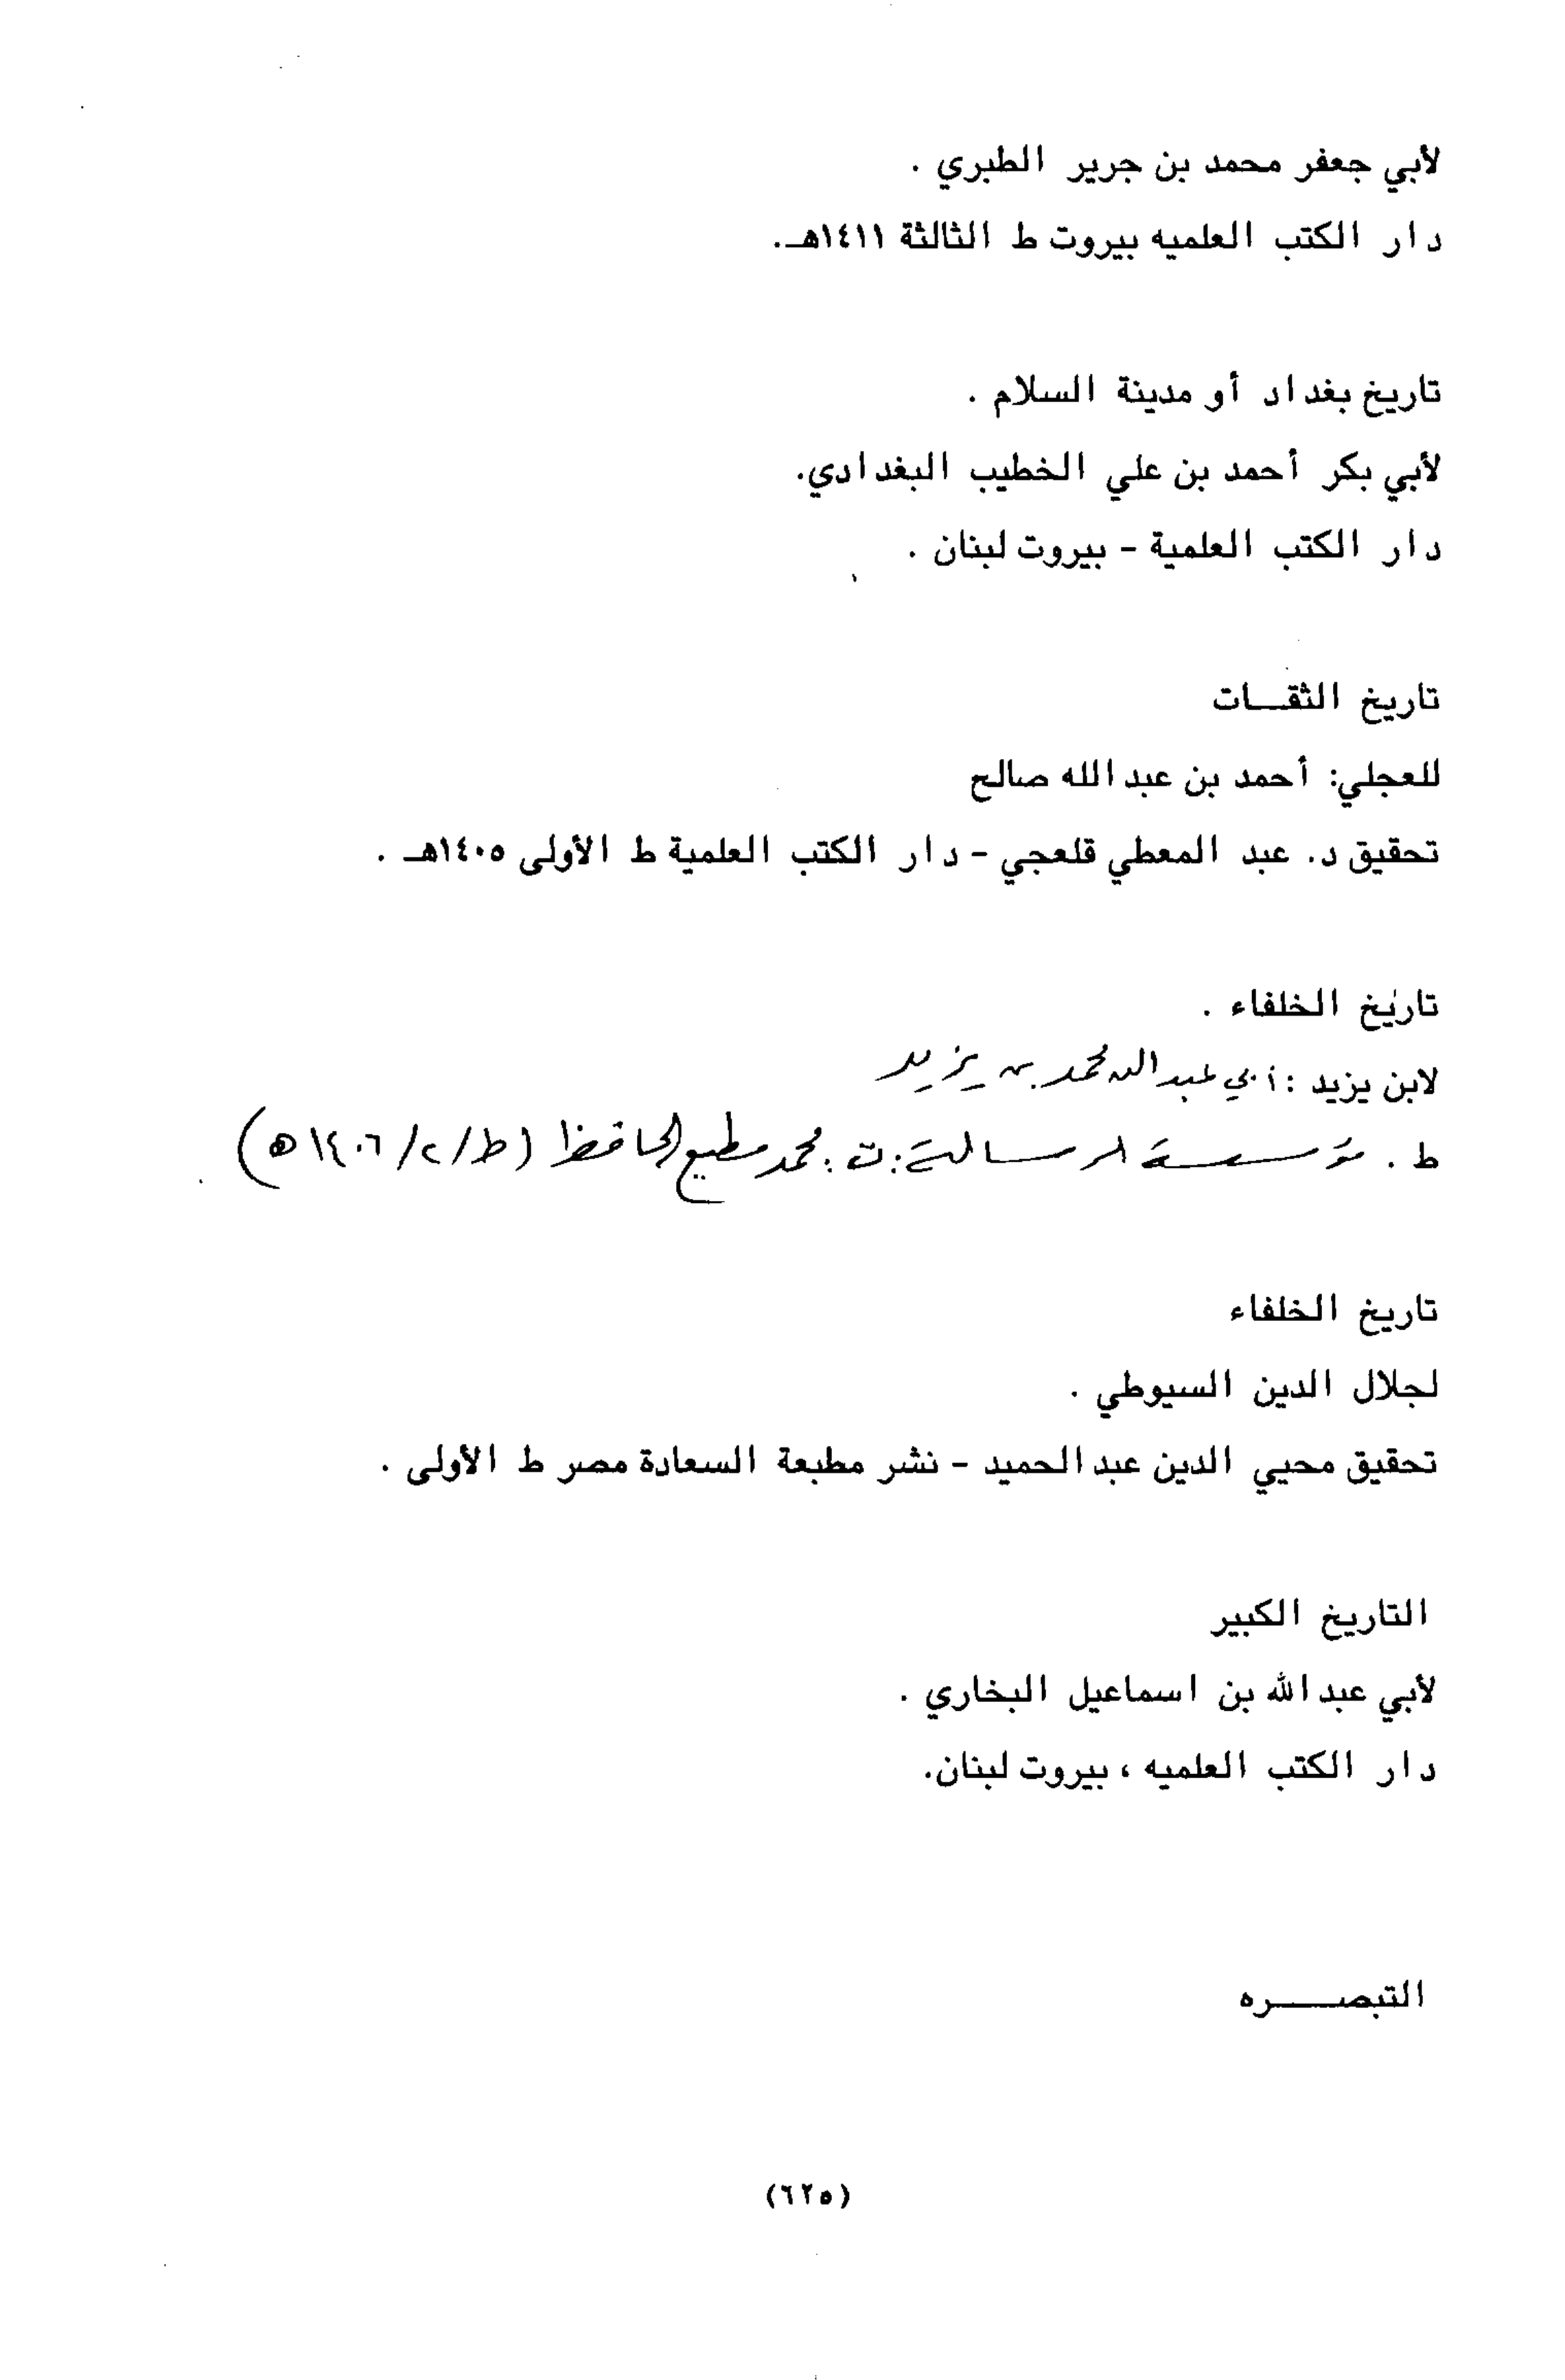 لأبي جعفر محمد بن جرير الطبري .
دار الكتب العلميه بيروت ط الثالثة ١٤١١هـ.
تاريخ بغداد أو مدينة السلام .
لأبي بكر أحمد بن علي الخطيب البغدادي.
دار الكتب العلمية - بيروت لبنان .
تاريخ الثقـــات
للعجلي: أحمد بن عبد الله صالح
تحقيق د. عبد المعطي قلعجي - دار الكتب العلمية ط الأولى ١٤٠٥هـ .
تاريخ الخلفاء .
لابن يزيد : أبي عبد الله محمد بن يزيد
ط . مؤسسة الرسالة : ت : محمد مطيع الحافظ (ط/٢/١٤٠٦ه)
تاريخ الخلفاء
لجلال الدين السيوطي .
تحقيق محيي الدين عبد الحميد - نشر مطبعة السعادة مصر ط الأولى .
التاريخ الكبير
لأبي عبد الله بن اسماعيل البخاري .
دار الكتب العلميه ، بيروت لبنان.
التبصـــــره
(٦٢٥)